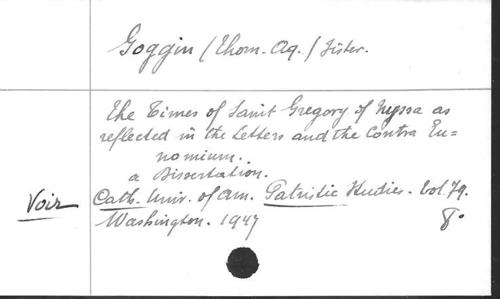 Goggin (Thom. Aq.) Sister.
The Times of Saint Gregory of Nyssa as
reflected in the Letters and the Contra Eu=
nomium.
a Dissertation.
Voir Cath. Univ. of Am. Patristic Studies. Vol. 79.
Washington. 1947 8.